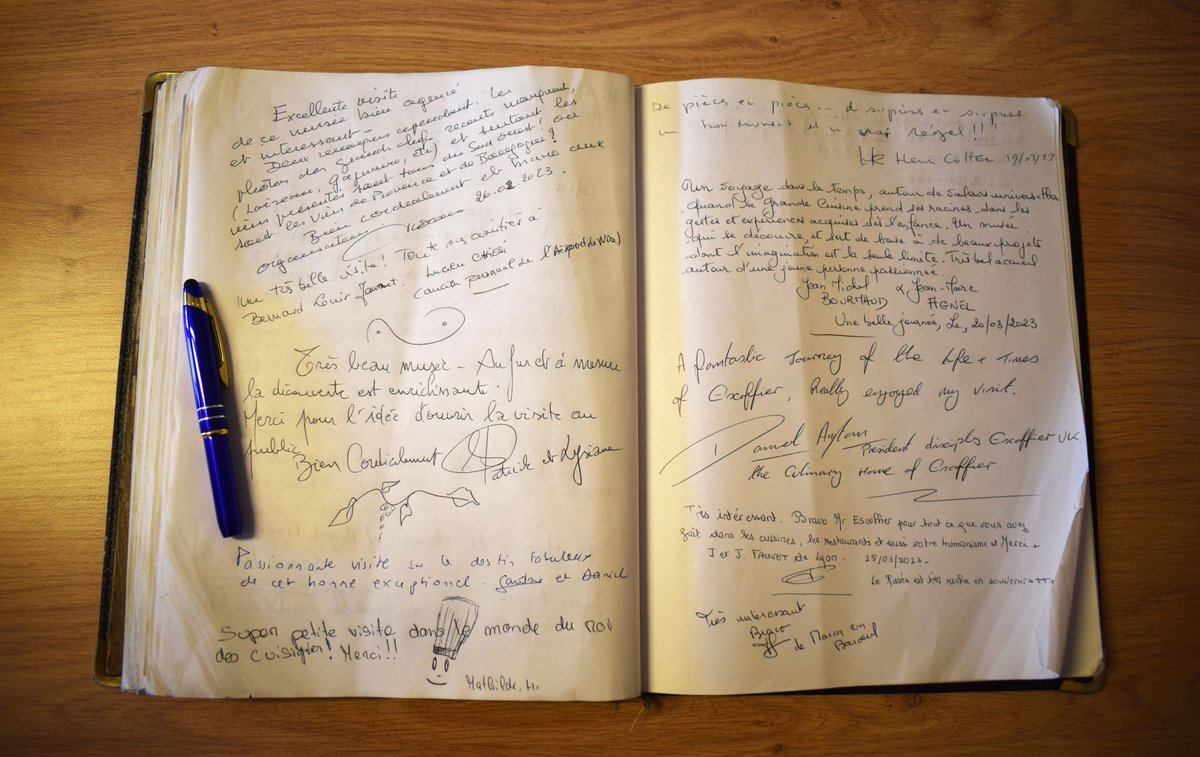 Excellente visite
de ce musée bien agencé
et interessant.
Deux remarques cependant. Les
photos des grands chefs récents manquent,
(Loiseau, etc) et surtout les
vins présentés sont tous du Sud Ouest! où
sont les Vins de Provence et de Bourgogne?
Bien cordialement et bravo aux
organisateurs 26.02.2023.
une très belle visite! Toute nos amitiés à
Bernard Louis- Lucien
amicale personnel de l'Aéroport de Nice)
Très beau musée - Au fur et à mesure
la découverte est enrichissant.
Merci pour l'idée d'ouvrir la visite au
public
Bien Cordialement Patrick et Lysiane
Passionnante visite sur le destin fabuleux
de cet homme exceptionel. et Daniel
Super petite visite dans le monde du roi
des cuisinier! Merci!!
Mathilde. H.
De pièces en pièces... d surprises en surprise
un bon moment et un vrai régal!!!
Henri Cotten 19/03/23
Un voyage dans le temps, autour de valeurs universelles
Quand la Grande Cuisine prend ses racines dans les
gestes et expériences acquises dès l'enfance. Un musée
qui se découvre et sert de base à de beaux projets
dont l'imagination est la seule limite. Très bel accueil
autour d'une jeune personne passionnée.
Jean Michel & Jean-Marc
BOURHAUD AGNEL
Une belle journée, Le, 20/03/2023
A fantastic Journey of the Life + Times
of Escoffier, Really enjoyed my visit.
Daniel Ayton President disciples Escoffier UK.
the Culinary Home of Escoffier.
Très intéressant. Bravo Mr Escoffier pour tout ce que vous avez
fait dans les cuisines, les restaurants et aussi votre humanisme et Merci.
J et J. FAUVET de Lyon. 25/03/2023.
Le Musée est très riche en souvenir +++
Très interessant
Bravo
de Marcq en
Baroeul